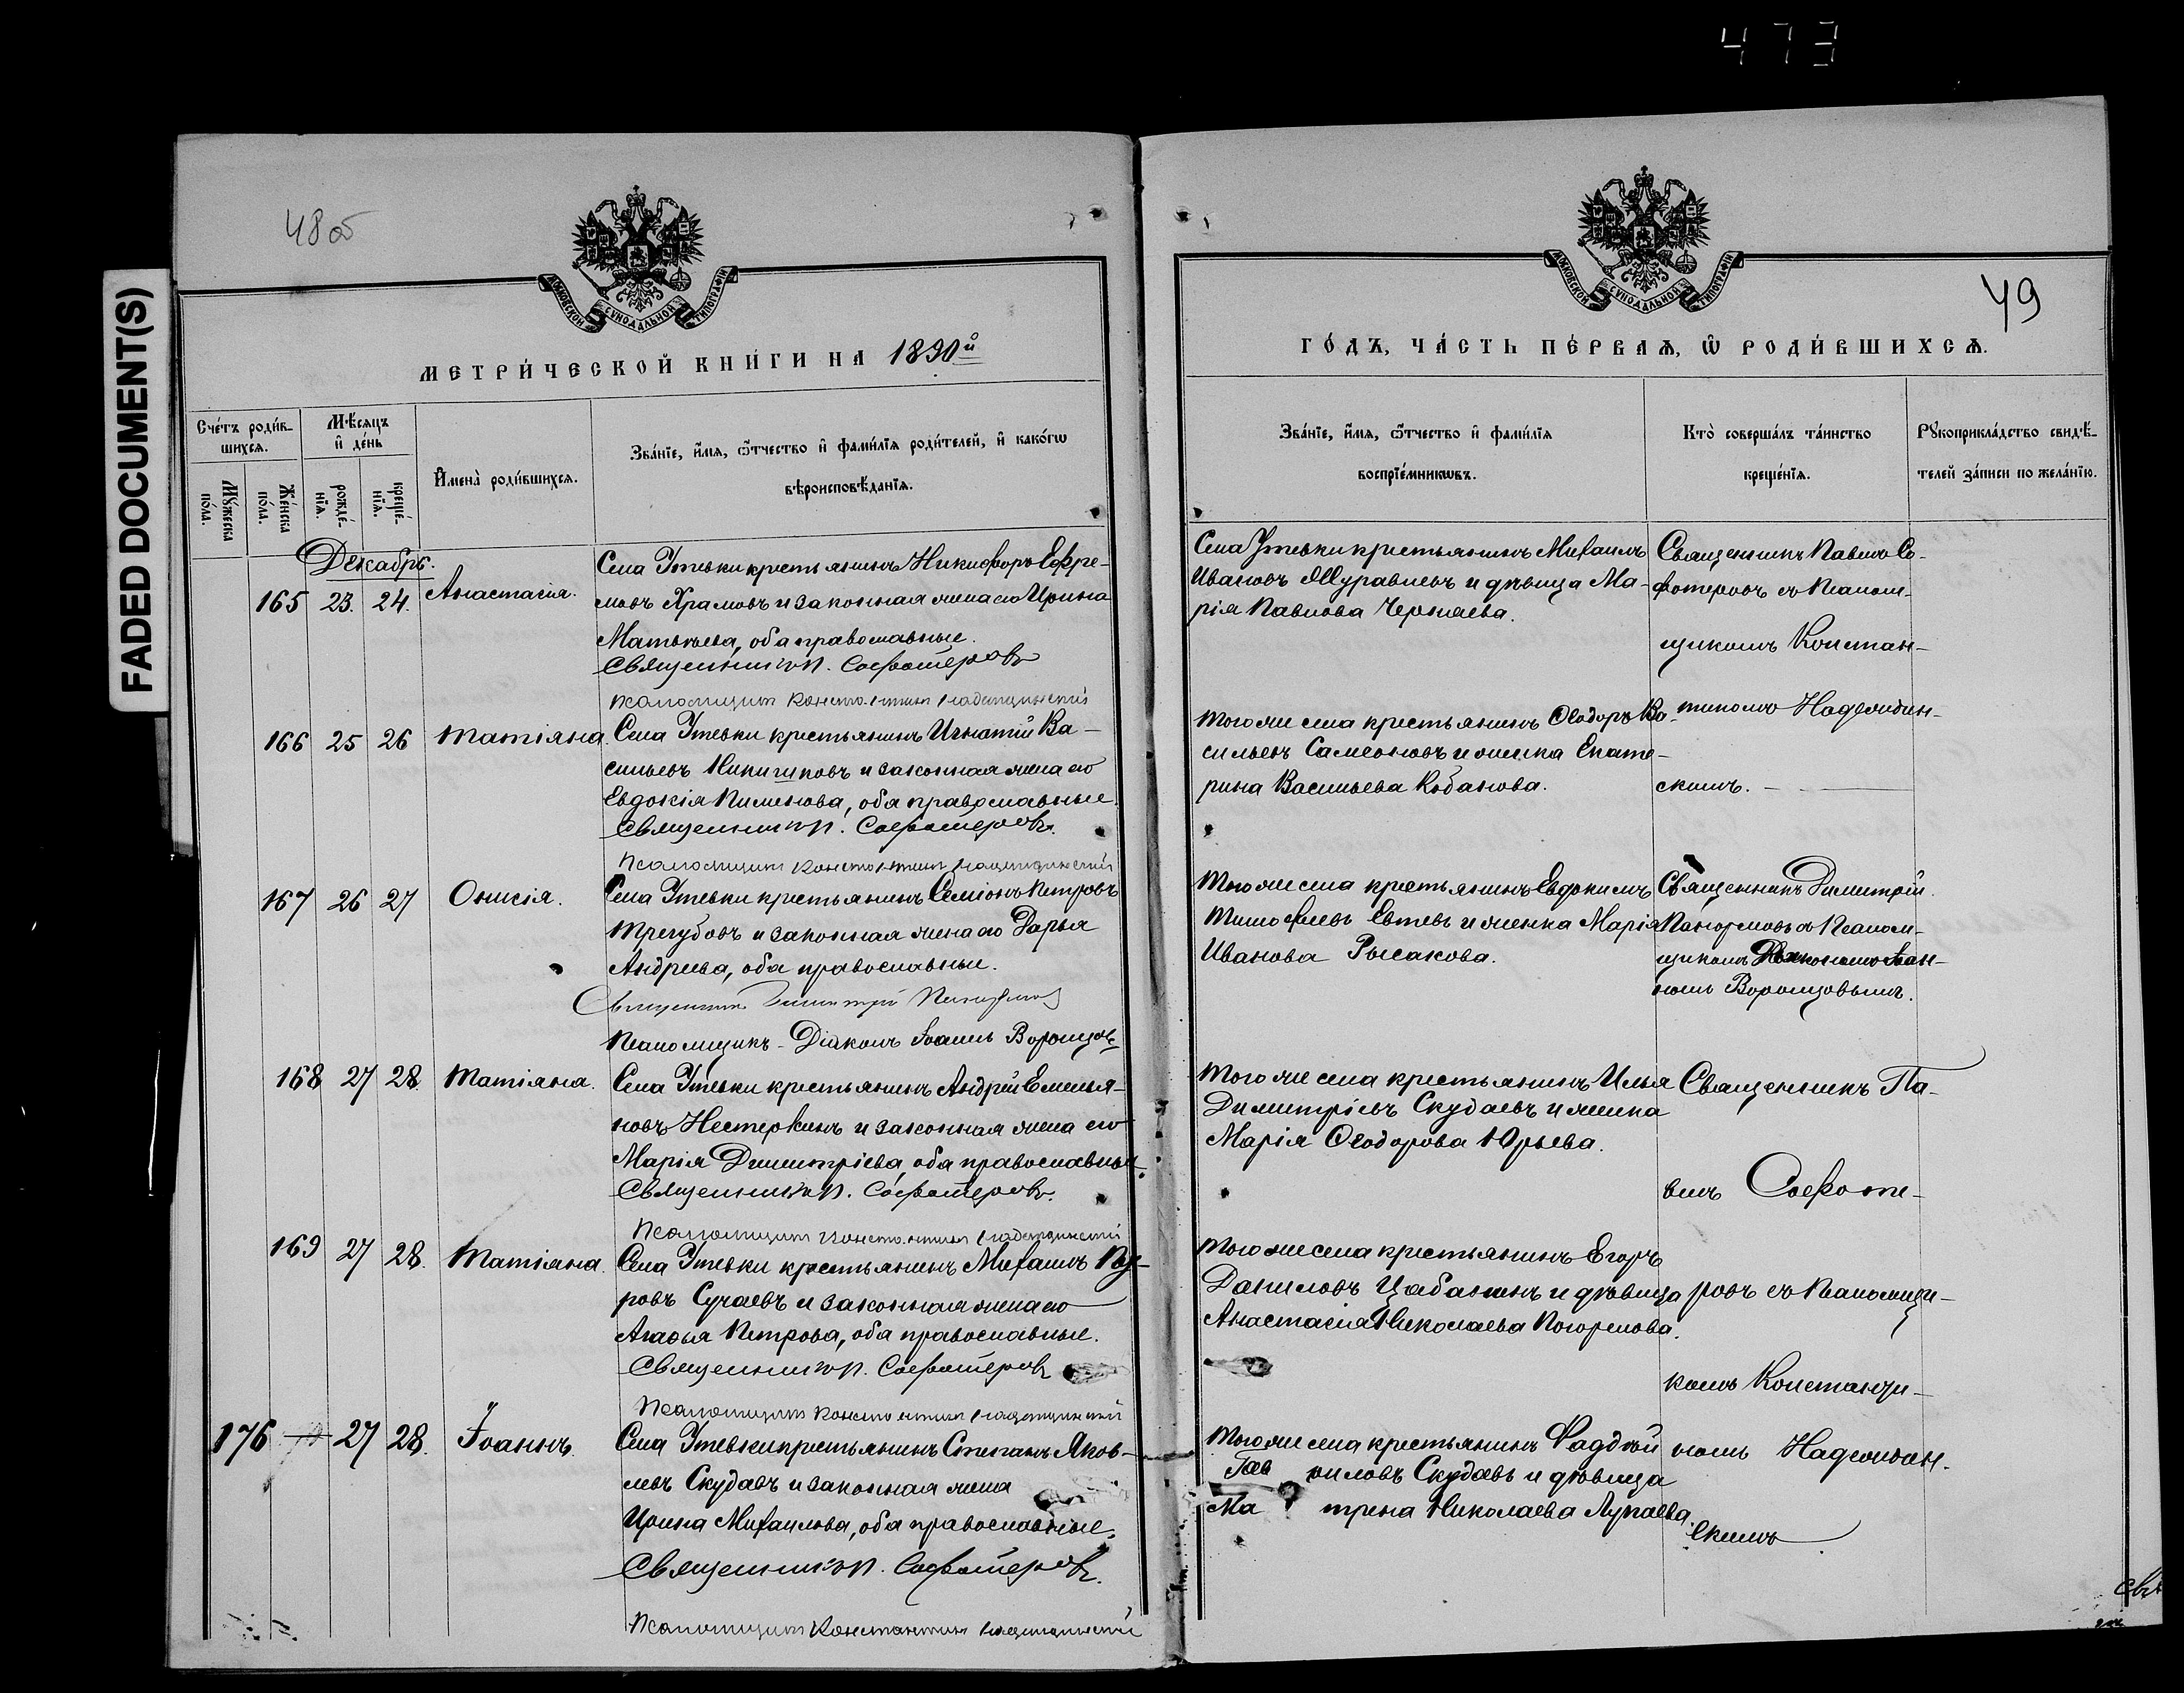 473
FADED DOCUMENT(S)
48 об
МОСКОВСКОЙ СУНОДАЛЬНОЙ ТИПОГРАФІИ
МЕТРИ́ЧЕСКОЙ КНИ́ГИ НА 1890й
Сче́тъ роди́в-
шихся.
Мѣ́сяцъ
и҆ де́нь
Му́жеска по́ла.
Же́нска по́ла.
рожде́-
нїѧ.
креще́-
нїѧ.
И҆мена̀ роди́вшихсѧ.
Зва́нїе, и҆́мѧ, ѻ҆́тчество и҆ фами́лїѧ роди́телей, и҆ како́гѡ
вѣроисповѣ́данїѧ.
Декабрь.
165 23. 24. Анастасія.
Села Утевки крестьянинъ Никифоръ Ефре-
мовъ Храмовъ и законная жена его Ирина
Матвѣева, оба православные.
Священникъ П. Сосфотеровъ
Псаломщикъ Константинъ Надеждинскій
166 25 26 Татіяна.
Села Утевки крестьянинъ Игнатій Ва-
сильевъ Никишковъ и законная жена его
Евдокія Пименова, оба православные.
Священникъ П. Сосфотеровъ.
Псаломщикъ Константинъ Надеждинскій
167 26 27 Онисія.
Села Утевки крестьянинъ Семіонъ Петровъ
Трегубовъ и законная жена его Дарья
Андреева, оба православные.
Священникъ Димитрій Панормовъ
Псаломщикъ - Діаконъ Іоаннъ Воронцовъ
168 27 28. Татіяна.
Села Утевки крестьянинъ Андрей Емелья-
новъ Нестеркинъ и законная жена его
Марія Димитріева, оба православные.
Священникъ П. Сосфотеровъ.
Псаломщикъ Константинъ Надеждинскій
169 27 28. Татіяна.
Села Утевки крестьянинъ Михаилъ
ровъ Сучаевъ и законная жена его
Агаѳья Петрова, оба православные.
Священникъ П. Сосфотеровъ
Псаломщикъ Константинъ Надеждинскій
176 27 28. Іоаннъ.
Села Утевки крестьянинъ Степанъ Яков-
левъ Скудаевъ и законная жена
Ирина Михаилова, оба православные.
Священникъ П. Сосфотеровъ.
Псаломщикъ Константинъ Надеждинскій
МОСКОВСКОЙ СУНОДАЛЬНОЙ ТИПОГРАФІИ
49
ГО́ДЪ, ЧА́СТЬ ПЕ́РВАѦ, Ѡ҆ РОДИ́ВШИХСѦ.
Зва́нїе, и҆́мѧ, ѻ҆́тчество и҆ фами́лїѧ
воспрїе́мникѡвъ.
Кто̀ соверша́лъ та́инство
креще́нїѧ.
Рꙋкоприкла́дство свидѣ́-
телей за́писи по жела́нїю.
Села Утевки крестьянинъ Михаилъ
Ивановъ Журавлевъ и дѣвица Ма-
рія Павлова Черняева.
Священникъ Павелъ Со-
сфотеровъ съ Псалом-
щикомъ Констан-
тиномъ Надеждин-
скимъ.
Того же села крестьянинъ Ѳеодоръ Ва-
сильевъ Самсоновъ и женка Екате-
рина Васильева Кобанова.
Того же села крестьянинъ Евдокимъ
Тимофеевъ Евтевъ и женка Марія
Иванова Рысакова.
Священникъ Димитрій
Панормовъ съ Псалом-
щикомъ Діакономъ Іоан-
номъ Воронцовымъ.
Того же села крестьянинъ Илья
Димитріевъ Скудаевъ и женка
Марія Ѳеодорова Юрьева.
Священникъ Па-
велъ Сосфоте-
Того же села крестьянинъ Егоръ
Даниловъ Цабанинъ и дѣвица
Анастасія Николаева Погорелова.
ровъ съ Псаломщи-
комъ Константи-
Того же села крестьянинъ Фаддѣй
Гав риловъ Скудаевъ и дѣвица
Ма трена Николаева Лупаева.
номъ Надеждин-
скимъ
Свя